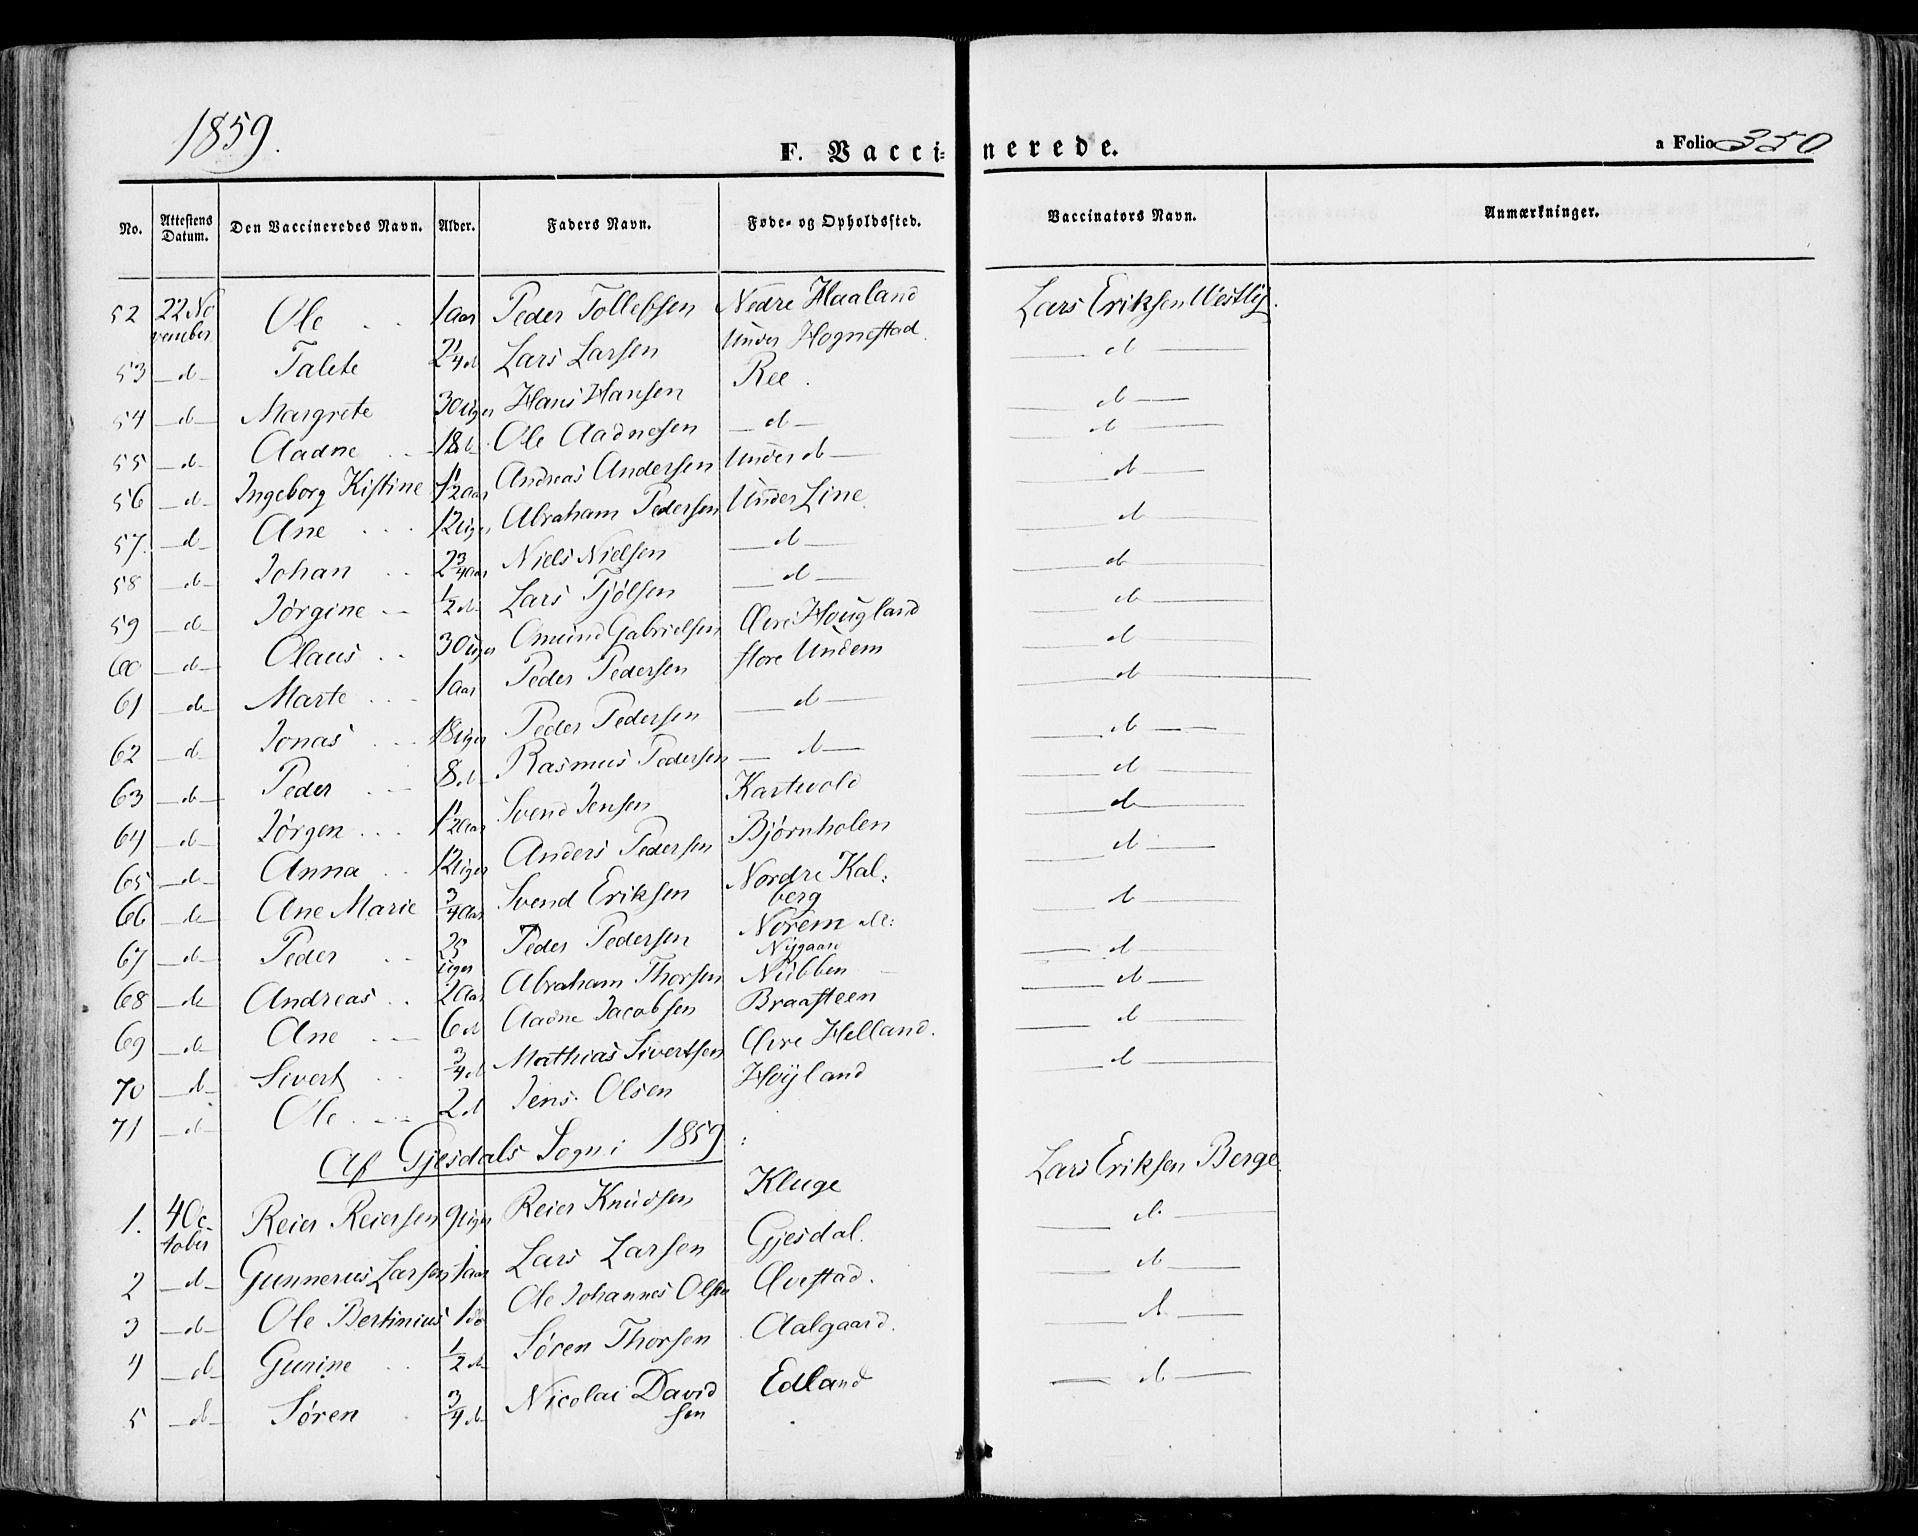 1859.
F. Vaccinerede.
a Folio 350
No. Attestens Datum. Den Vaccineredes Navn. Alder. Faders Navn. Føde- og Opholdssted. Vaccinators Navn. Anmærkninger.
52 22 November Ole 1 aar Peder Tollefsen Nedre Haaland Lars Eriksen Westly.
53 — d — Talete 2 1/4 d Lars Larsen Under Hognestad. — d —
54 — d — Margrete 30 Uger Hans Hansen Ree. — d —
55 — d — Aadne 18 d Ole Aadnesen — d — — d —
56 — d — Ingeborg Kistine 1 1/2 Aar Andreas Andersen Under d — — d —
57. — d — Ane 12 Uger Abraham Pedersen Under Line — d —
58 — d — Johan 2 3/4 Aar Niels Nielsen — d — — d —
59 — d — Jørgine 1/2 d Lars Tjølsen — d — — d —
60 — d — Olaus 30 Uger Omund Gabrielsen Øvre Hougland — d —
61 — d — Marte 1 aar Peder Pedersen store Undem — d —
62 — d — Jonas 18 Uger Peder Pedersen — d — — d —
63 — d — Peder 8 d Rasmus Pedersen — d — — d —
64 — d — Jørgen 1 1/2 Aar Svend Jensen Kartevold — d —
65 — d — Anna 12 Uger Anders Pedersen Bjørnholen — d —
66 — d — Ane Marie 3/4 Aar Svend Eriksen Nordre Kalberg — d —
67 — d — Peder 25 Uger Peder Pedersen Norem Nygaard — d —
68 — d — Andreas 2 Aar Abraham Thorsen Nubben — d —
69 — d — Ane 6 d Aadne Jacobsen Braasteen — d —
70 — d — Sivert 3/4 d Mathias Sivertsen Øvre Helland. — d —
71 — d — Ole 2 d Jens Olsen Høyland
Af Gjesdals Sogn i 1859:
1. 4 October Reier Reiersen 9 Uger Reier Knudsen Kluge Lars Eriksen Berge
2 — d — Gunnerius Larsen 1 aar Lars Larsen Gjesdal. — d —
3 — d — Ole Bertinius 1 do Ole Johannes Olsen Øvestad. — d —
4 — d — Gunine 1/2 d Søren Thorsen Aalgaard. — d —
5 — d — Søren 3/4 d Nicolai Davidsen Edland — d —